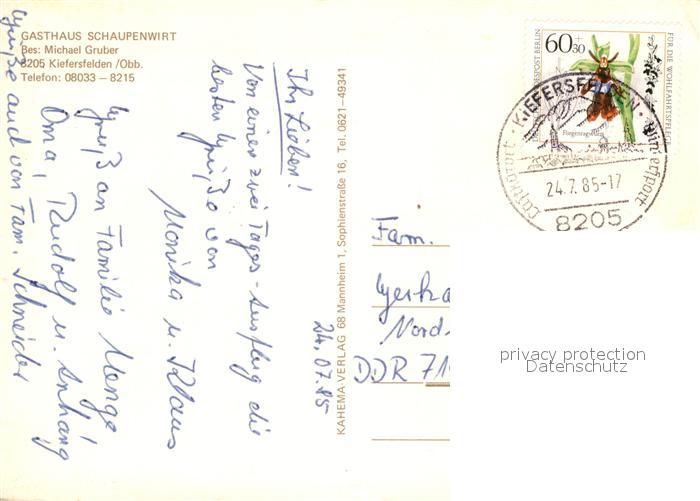 GASTHAUS SCHAUPENWIRT
Bes: Michael Gruber
8205 Kiefersfelden /Obb.
Telefon: 08033 – 8215
24.07.85
Ihr Lieben!
Von einer zwei Tages-Ausflug die
besten Grüße von
Monika u. Klaus
Gruß an Familie Menge
Oma, Rudolf u. Anhang
Grüße auch von Fam. Schneider
KAHEMA-VERLAG 68 Mannheim 1, Sophienstraße 16, Tel. 0621-49341
60+30
DEUTSCHE BUNDESPOST BERLIN
FÜR DIE WOHLFAHRTSPFLEGE
Fliegenragwurz
KIEFERSFELDEN
Luftkurort · Wintersport
24.7.85-17
8205
Fam.
Gerha
Nord
DDR 71
privacy protection
Datenschutz